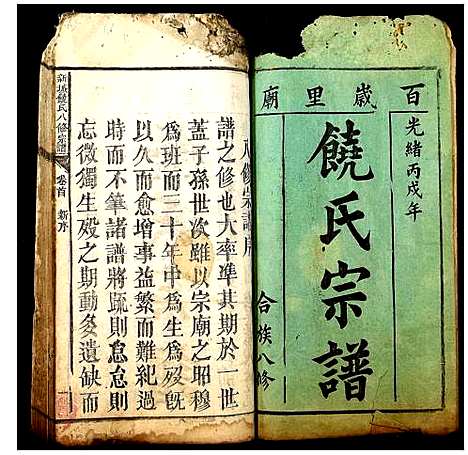 廟里歲百
光緒丙戌年
饒氏宗譜
合族八修
八修宗譜序
譜之修也大率準其期於一世
蓋子孫世次雖以宗廟之昭穆
為班而三十年中為生為歿既
以久而愈增事益繁而難紀過
時而不筆諸譜將疏則怠怠則
忘微獨生歿之期動多遺缺而
新城饒氏八修宗譜
卷首
新序